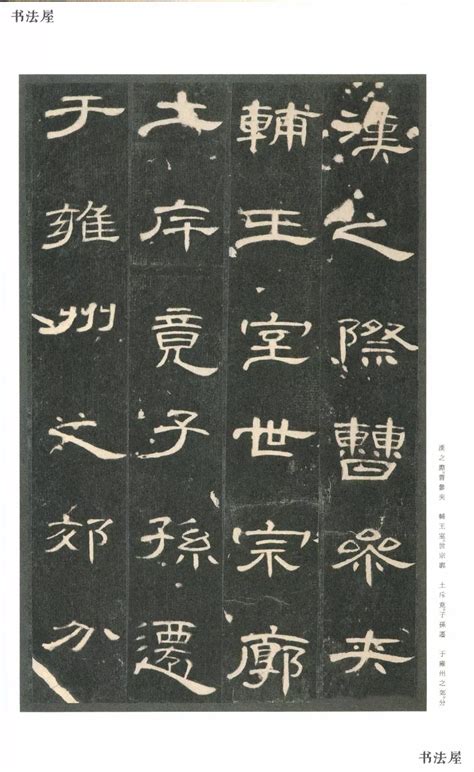 书法屋
漢之際曹參夾
輔王室世宗廓
土斥竟子孫遷
于雍州之郊分
漢之際，曹參夾　輔王室，世宗廓　土斥竟，子孫遷　于雍州之郊，分
书法屋